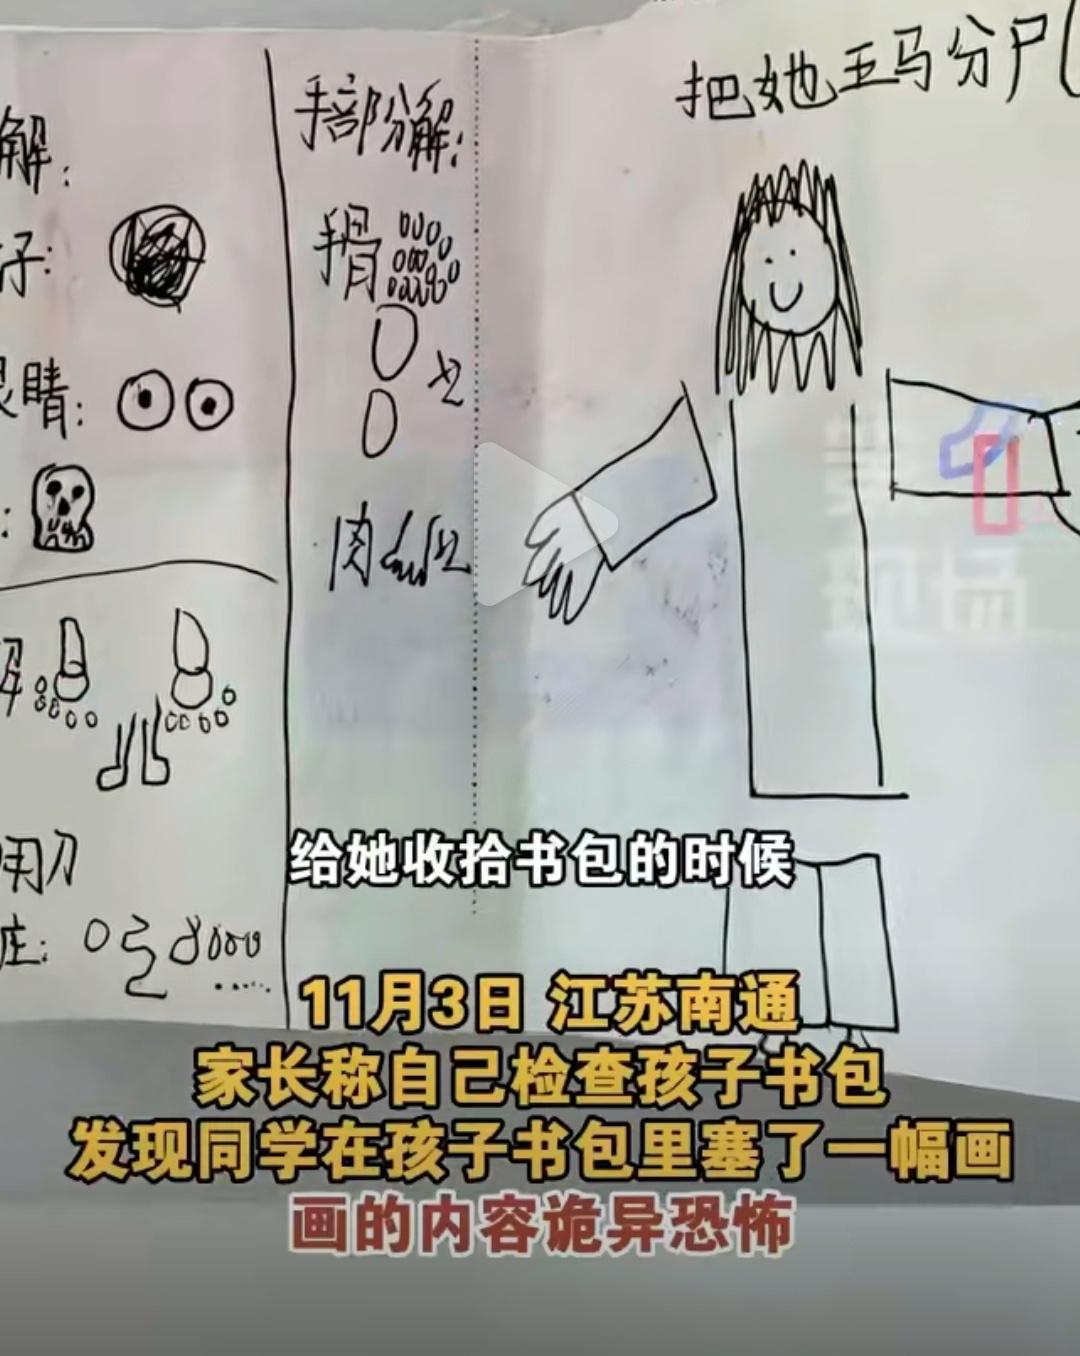 解:
子:
眼睛:
:
用刀
手部分解:
手骨
x2
肉 x2
把她五马分尸
给她收拾书包的时候
11月3日 江苏南通
家长称自己检查孩子书包
发现同学在孩子书包里塞了一幅画
画的内容诡异恐怖